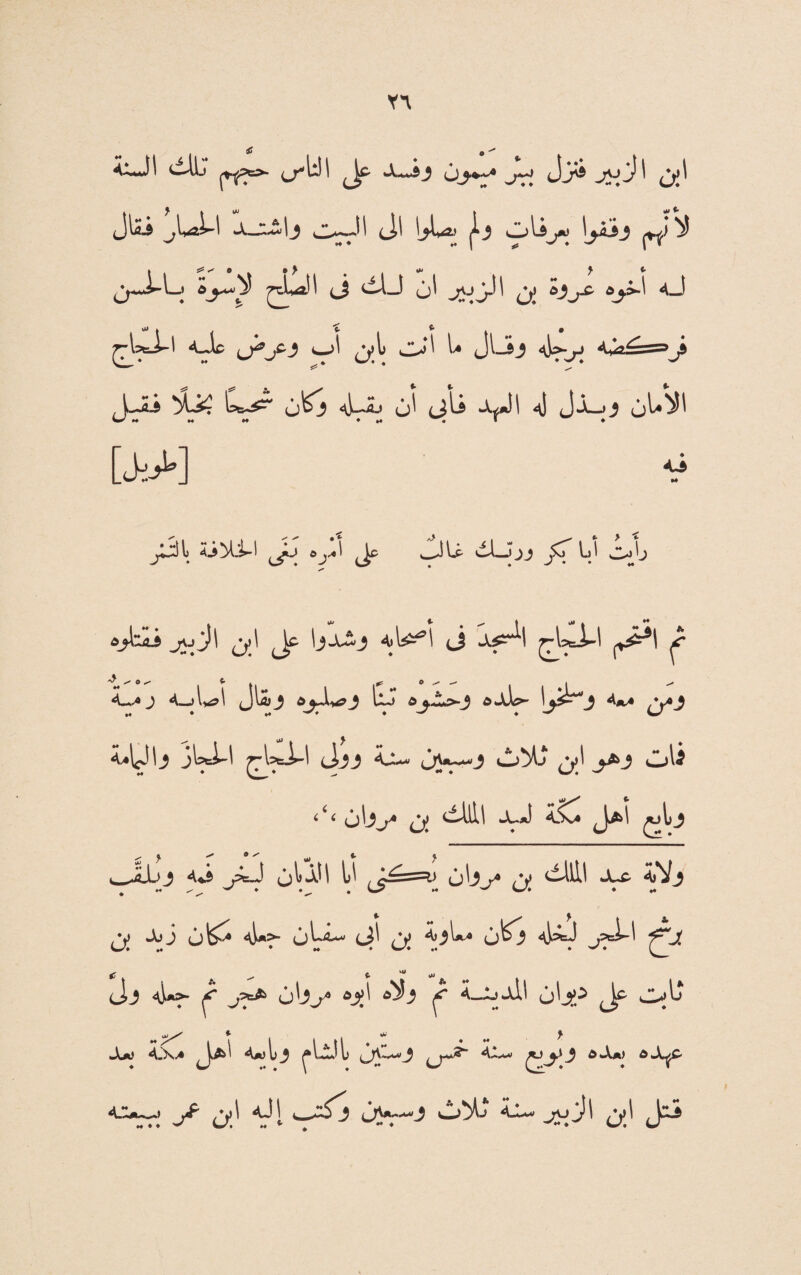 ٢٦
ابن الزبير فنزل بئر مَيْمون وفسد على الناس حجّهم تلك السنة
لأنّهم وقفوا بعرفات ولم يصلوا الى البيت واشتدّ الحصارُ فقال
له أخوه عُروة بن الزبير انّ لك فى الصُلح لأِسْوَةً بالحسن
فركضه برِجْله وقال ما أنت بابن أبى وعرض عليه الحجّاج
الأمان وبذل له العهد فأبى أن يقبله وكان شحيحًا بخيلًا فقيل
فيه [طويل]
رأيتُ أبا بَكْرٍ وربّك غالبٌ على أَمْرِه يَبْغِى الخلافة بالتمْرِ
ثم اقتحم الحجّاج المسجدَ فى أصحابه وشدّوا على ابن الزبير فقتلوه
ومَن معه وسلخوا جلده وحَشَوه تِبْنًا وصلبوه ويقال أصابَتْه رَمْيةٌ
فمات وهو ابن ثلاث وسبعين سنة ووُلّى الحجّاج الحجاز واليمامة
وبايع أهل مكّة لعبد الملك بن مروان
ولاية عبد الملك بن مروان يُكنى أبا الذِبّان لبَخَرٍ فيه ويلقّب
برشح الحجر لبُخله وكان معاوية بن أبى سفيان جعله مكان زيد بن
ثابت على ديوان المدينة ثم ولّاه أبوه مروان هَجَرَ ثم جعله ولىَّ
عهده بعده وبُويع سنة خمس وستّين بالشام وبايعه أهل مكّة بعد
قتل ابن الزبير سنة ثلاث وسبعين وكتب إليه ابن عمر ببيعته